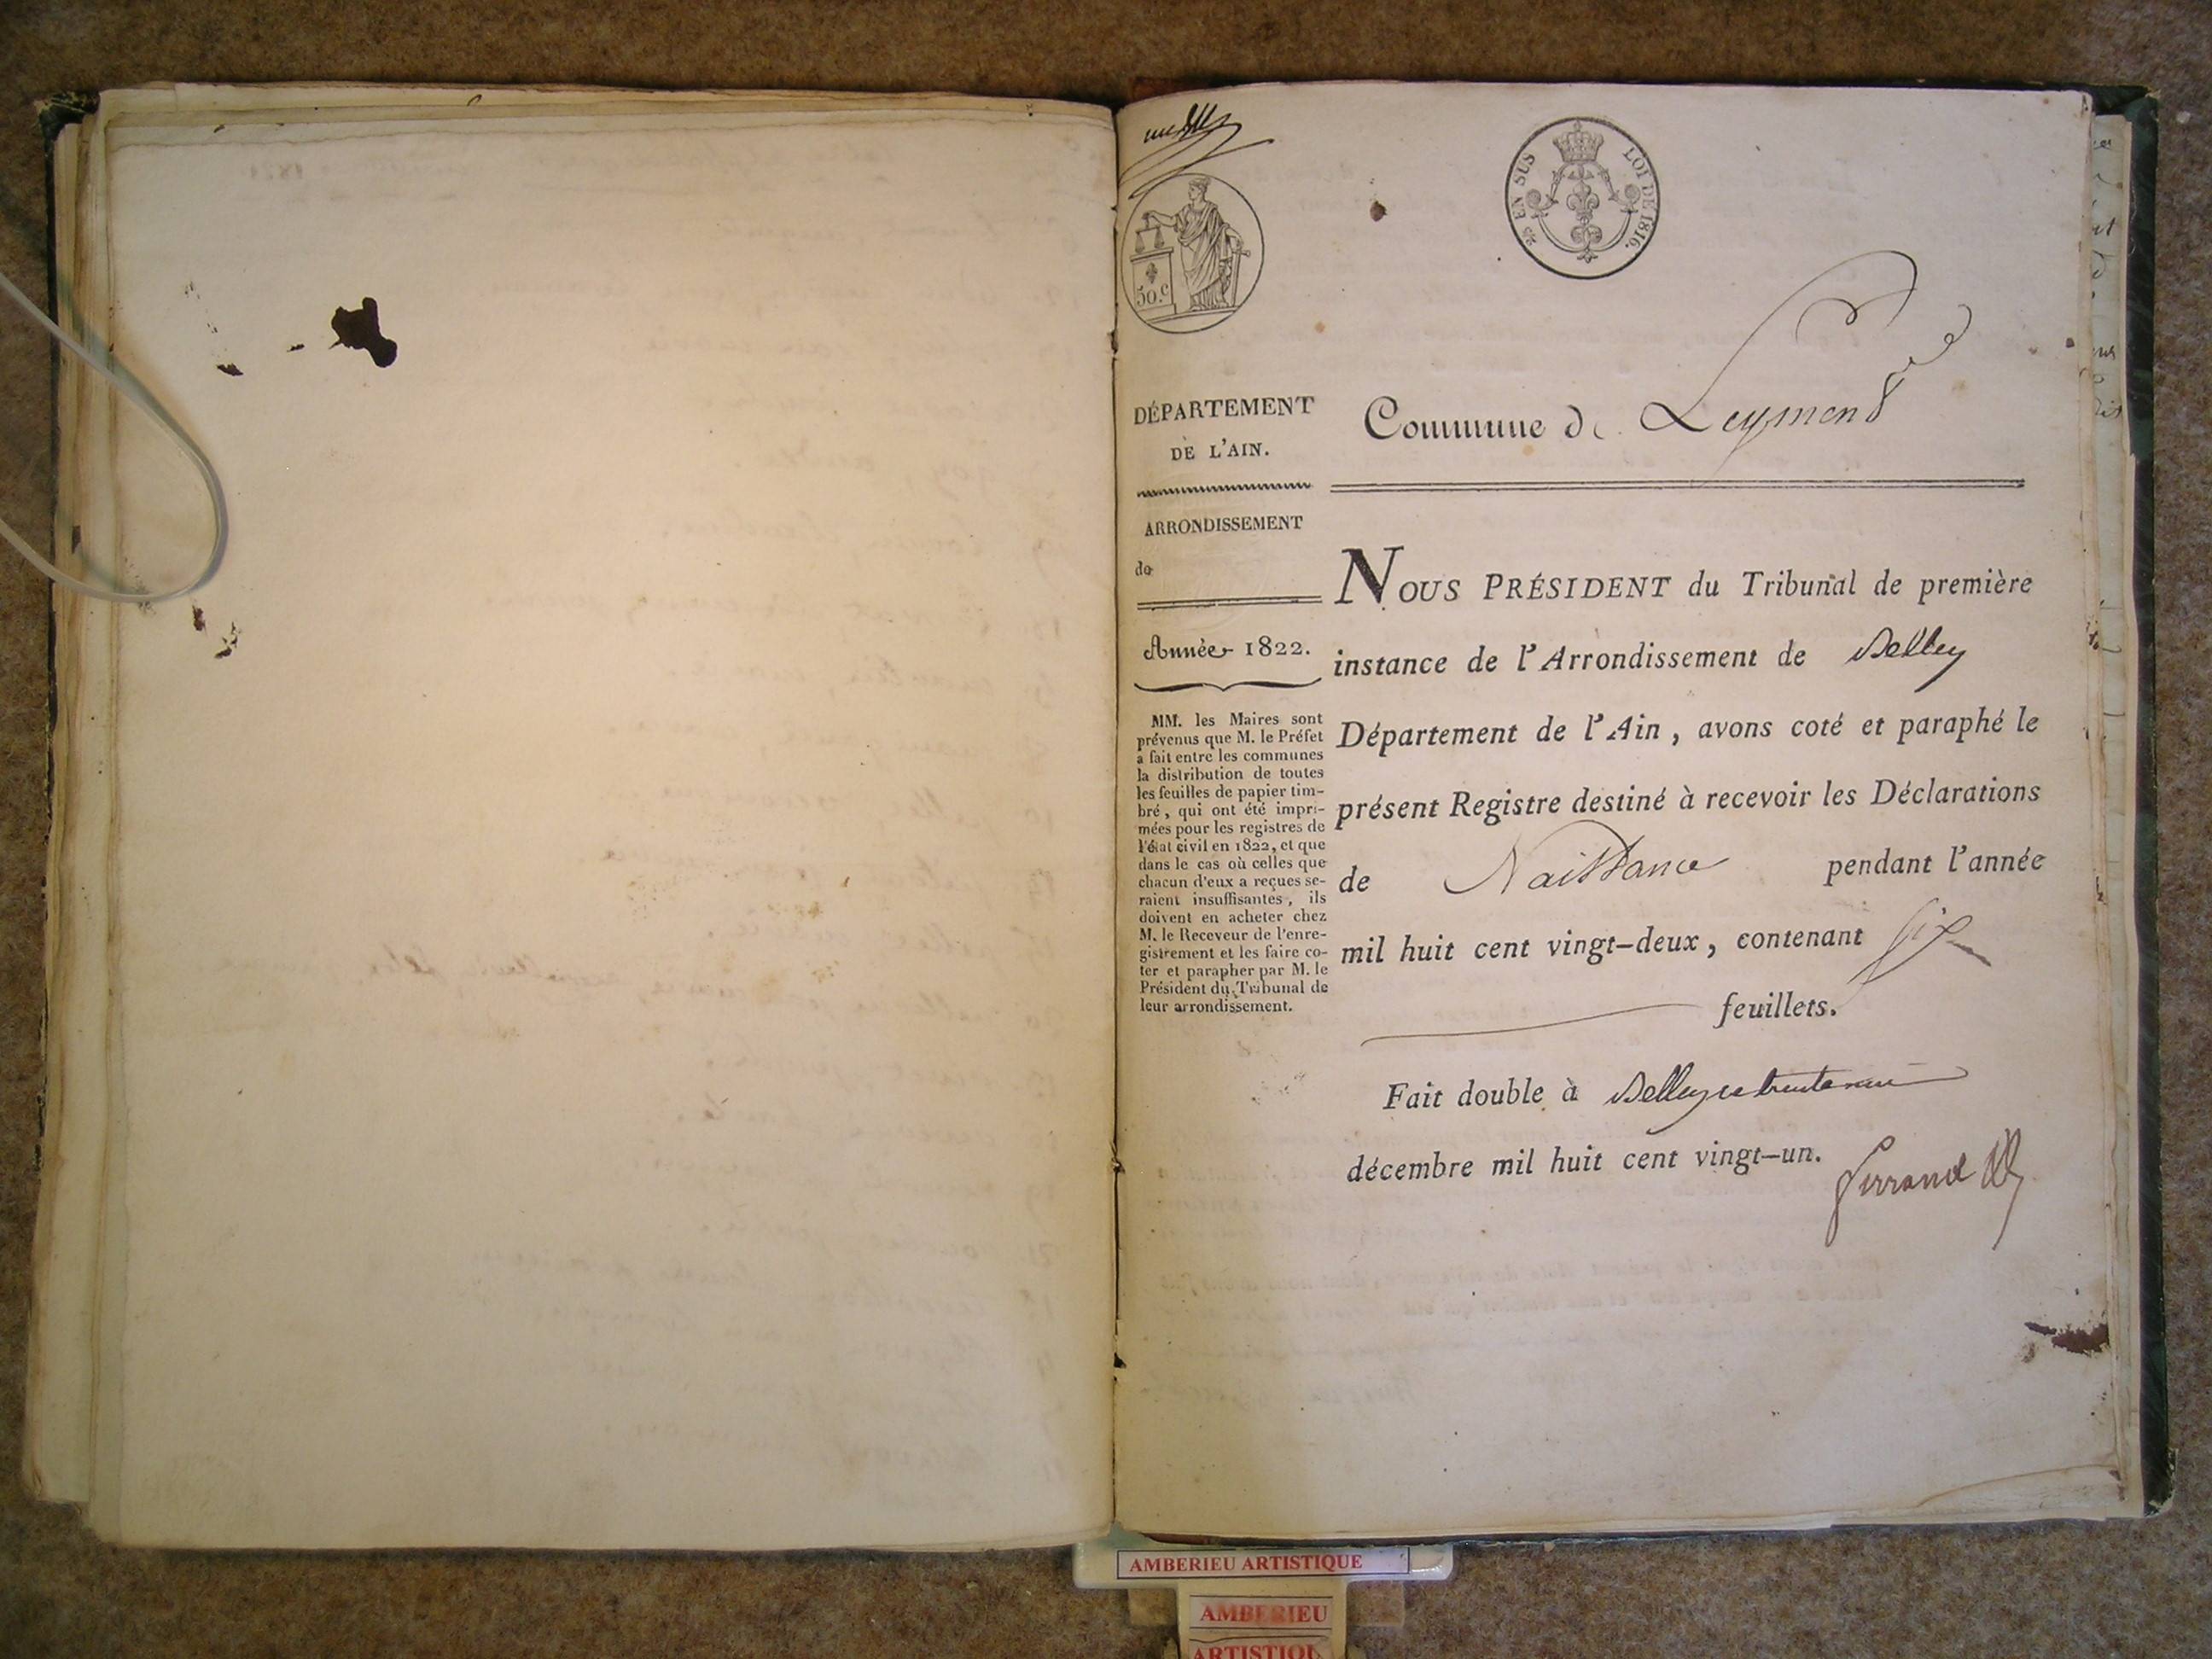 EN SUS LOI DE 1816.
50.c
DÉPARTEMENT
DE L'AIN.
ARRONDISSEMENT
de
Année 1822.
MM. les Maires sont
prévenus que M. le Préfet
a fait entre les communes
la distribution de toutes
les feuilles de papier tim-
bré, qui ont été impri-
mées pour les registres de
l'état civil en 1822, et que
dans le cas où celles que
chacun d'eux a reçues se-
raient insuffisantes, ils
doivent en acheter chez
M. le Receveur de l'enre-
gistrement et les faire co-
ter et parapher par M. le
Président du Tribunal de
leur arrondissement.
Commune de Leyment
NOUS PRÉSIDENT du Tribunal de première
instance de l'Arrondissement de Belley
Département de l'Ain, avons coté et paraphé le
présent Registre destiné à recevoir les Déclarations
de Naissance pendant l'année
mil huit cent vingt-deux, contenant six
feuillets.
Fait double à Belley
décembre mil huit cent vingt-un.
AMBERIEU ARTISTIQUE
AMBERIEU
ARTISTIQU